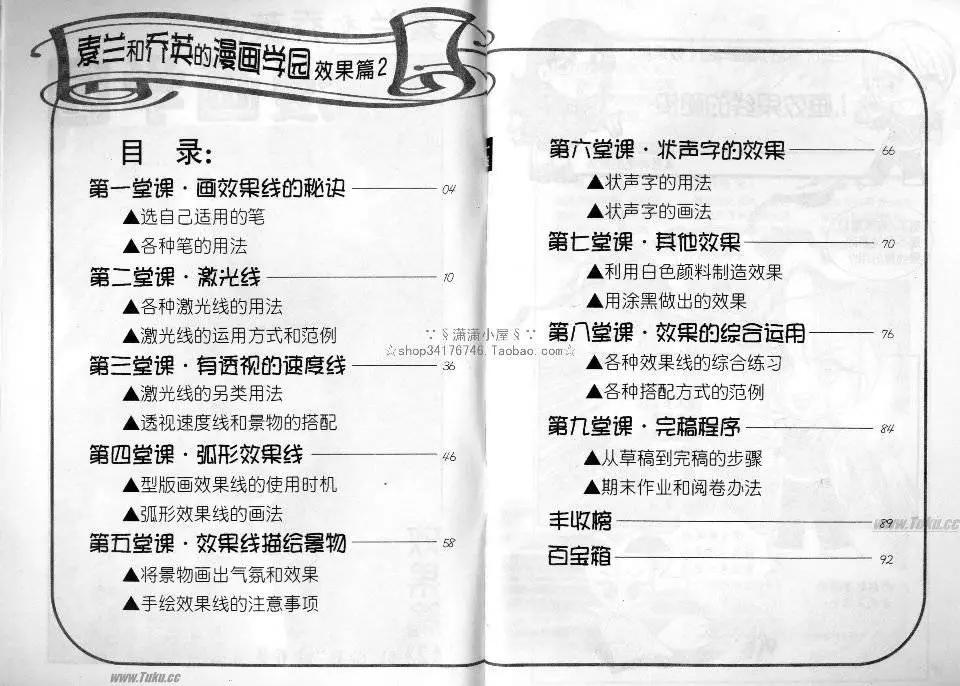 素兰和乔英的漫画学园 效果篇2
目 录:
第一堂课·画效果线的秘诀 04
▲选自己适用的笔
▲各种笔的用法
第二堂课·激光线 10
▲各种激光线的用法
▲激光线的运用方式和范例
第三堂课·有透视的速度线 36
▲激光线的另类用法
▲透视速度线和景物的搭配
第四堂课·弧形效果线 46
▲型版画效果线的使用时机
▲弧形效果线的画法
第五堂课·效果线描绘景物 58
▲将景物画出气氛和效果
▲手绘效果线的注意事项
第六堂课·状声字的效果 66
▲状声字的用法
▲状声字的画法
第七堂课·其他效果 70
▲利用白色颜料制造效果
▲用涂黑做出的效果
第八堂课·效果的综合运用 76
▲各种效果线的综合练习
▲各种搭配方式的范例
第九堂课·完稿程序 84
▲从草稿到完稿的步骤
▲期末作业和阅卷办法
丰收榜 89
百宝箱 92
∵§潇潇小屋§∵
☆shop34176746.Taobao.com☆
www.Tuku.cc
www.Tuku.cc